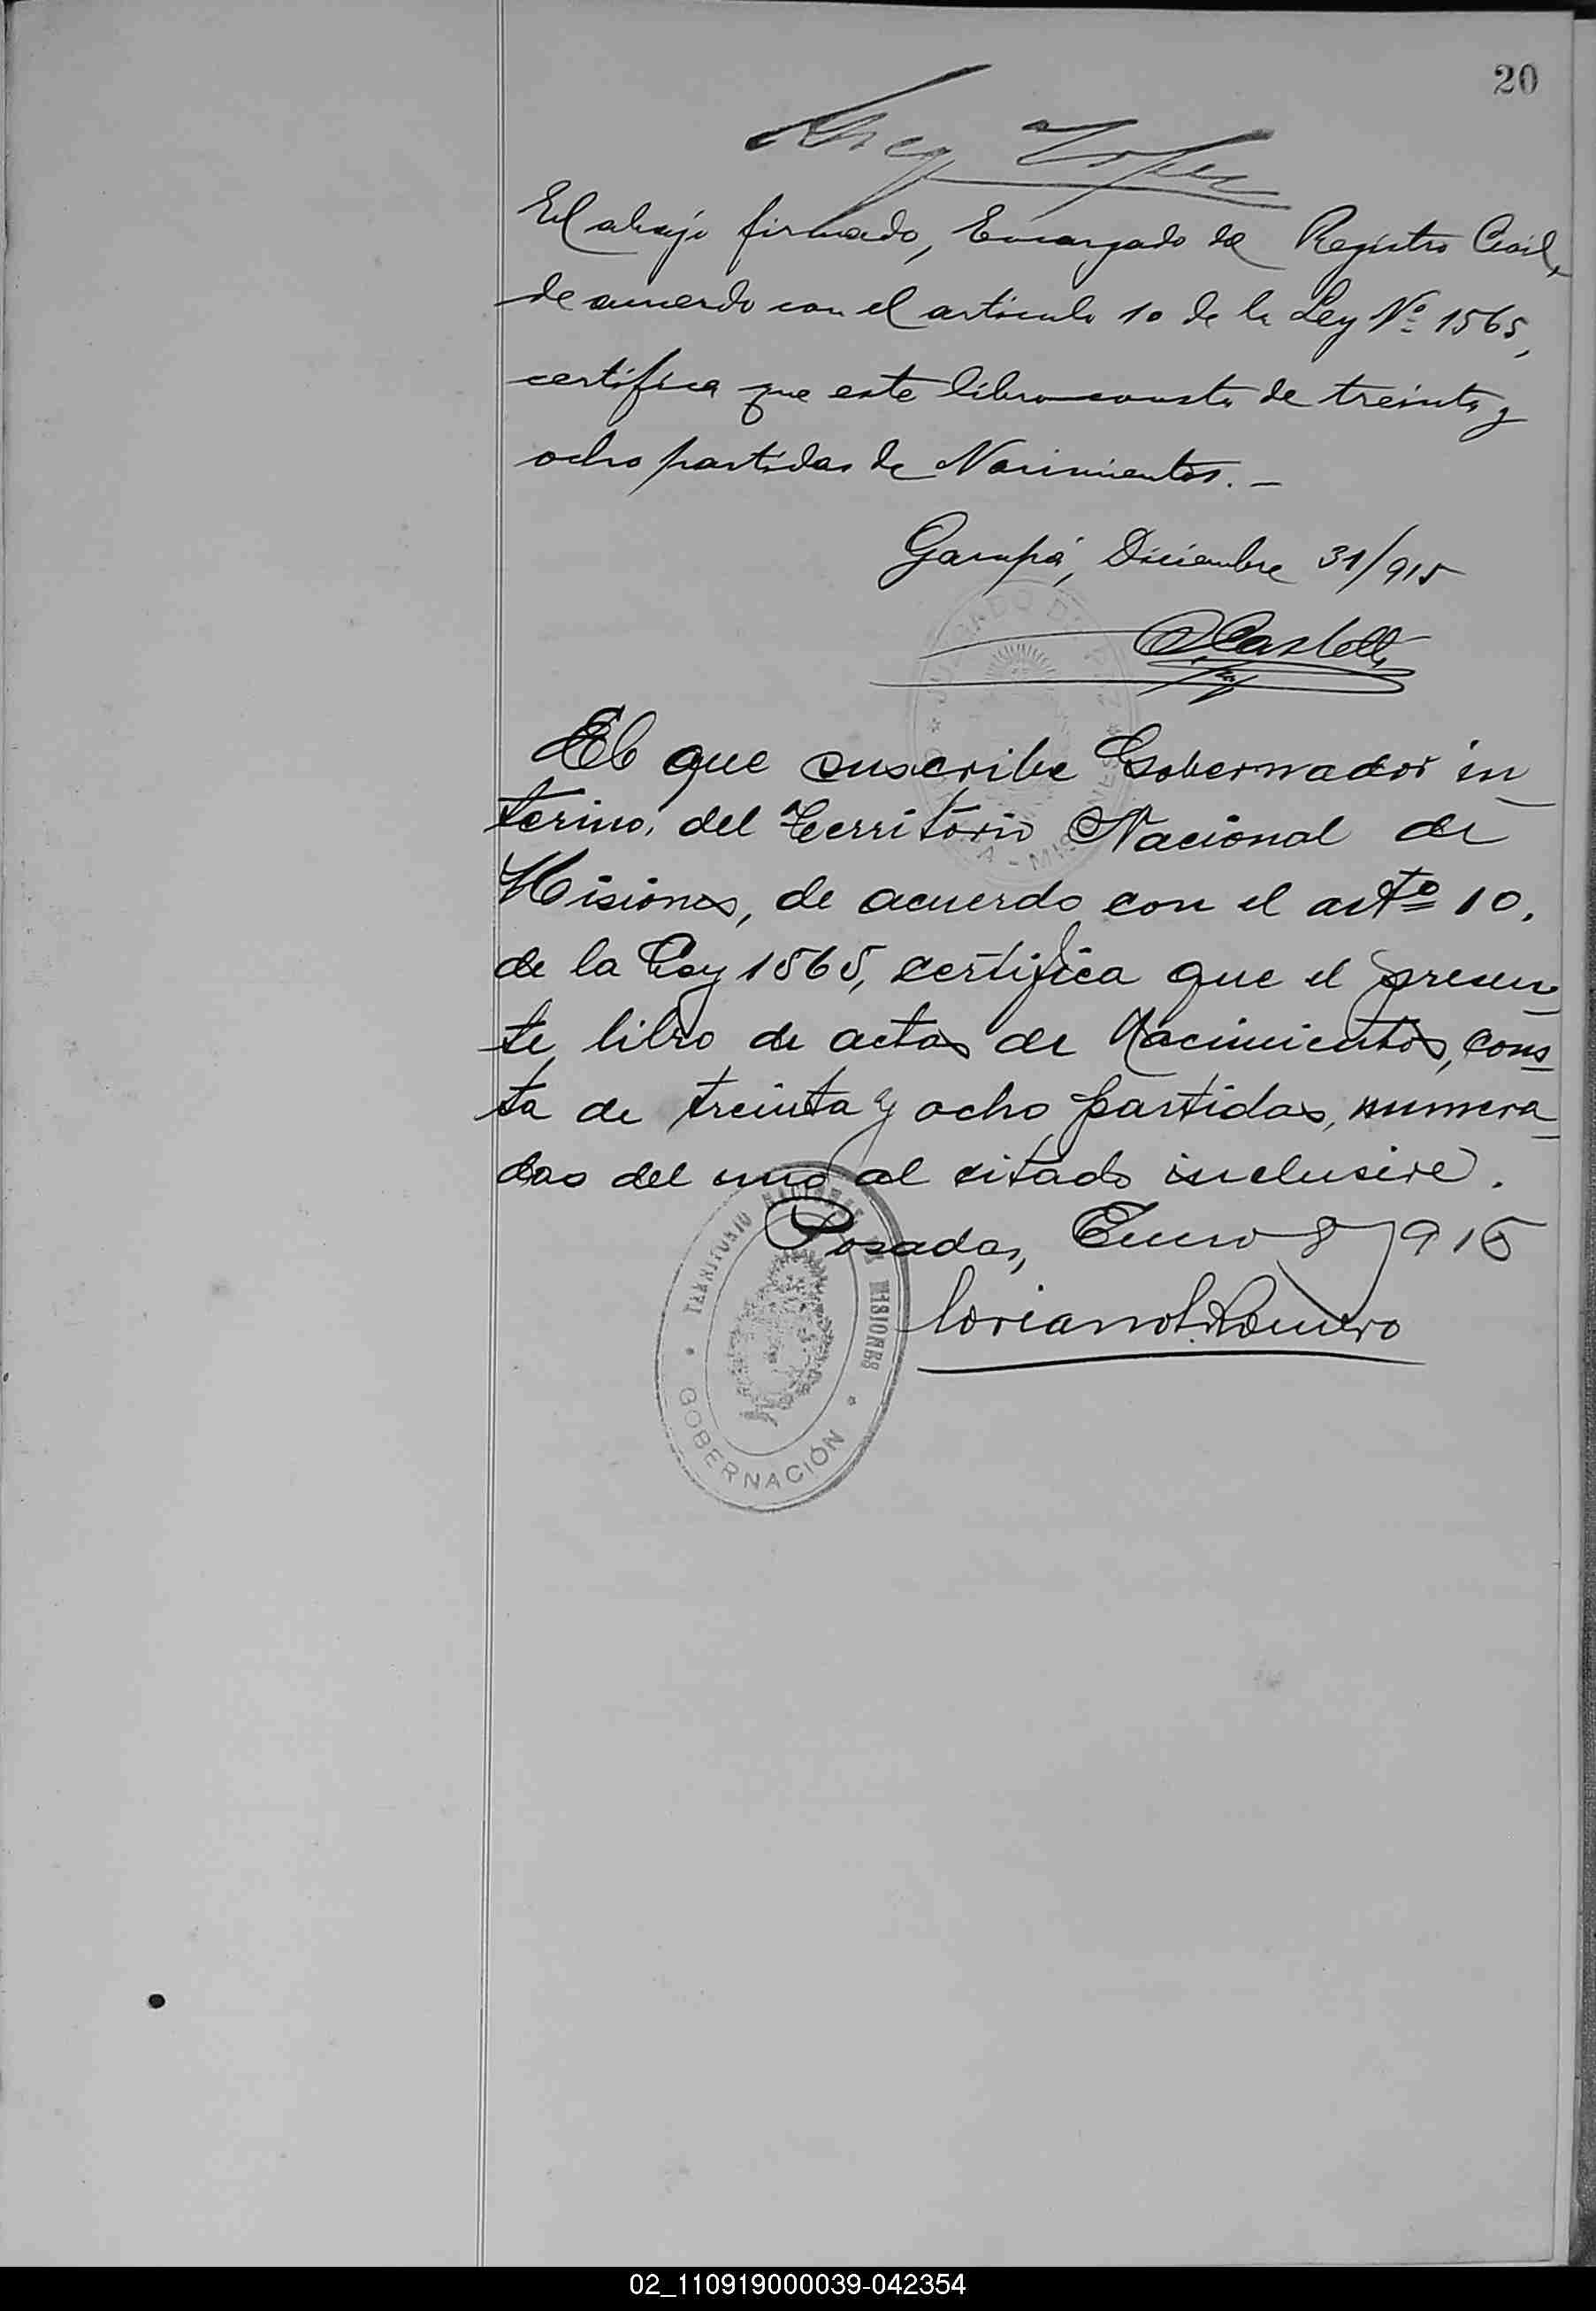 20
Lopez
El abajo firmado, Encargado del Registro Civil,
de acuerdo con el artículo 10 de la Ley Nº 1565,
certifica que este libro consta de treinta y
ocho partidas de Nacimientos. —
Garupá, Diciembre 31/915
El que suscribe Gobernador in
terino, del Territorio Nacional de
Misiones, de acuerdo con el artº 10.
de la Ley 1565, certifica que el presen
te libro de actas de Nacimientos, cons
ta de treinta y ocho partidas, numera
das del uno al citado inclusive.
Posadas, Enero 8/916
Romero
JUZGADO DE PAZ
MISIONES
TERRITORIO NACIONAL DE MISIONES
GOBERNACIÓN
02_110919000039-042354